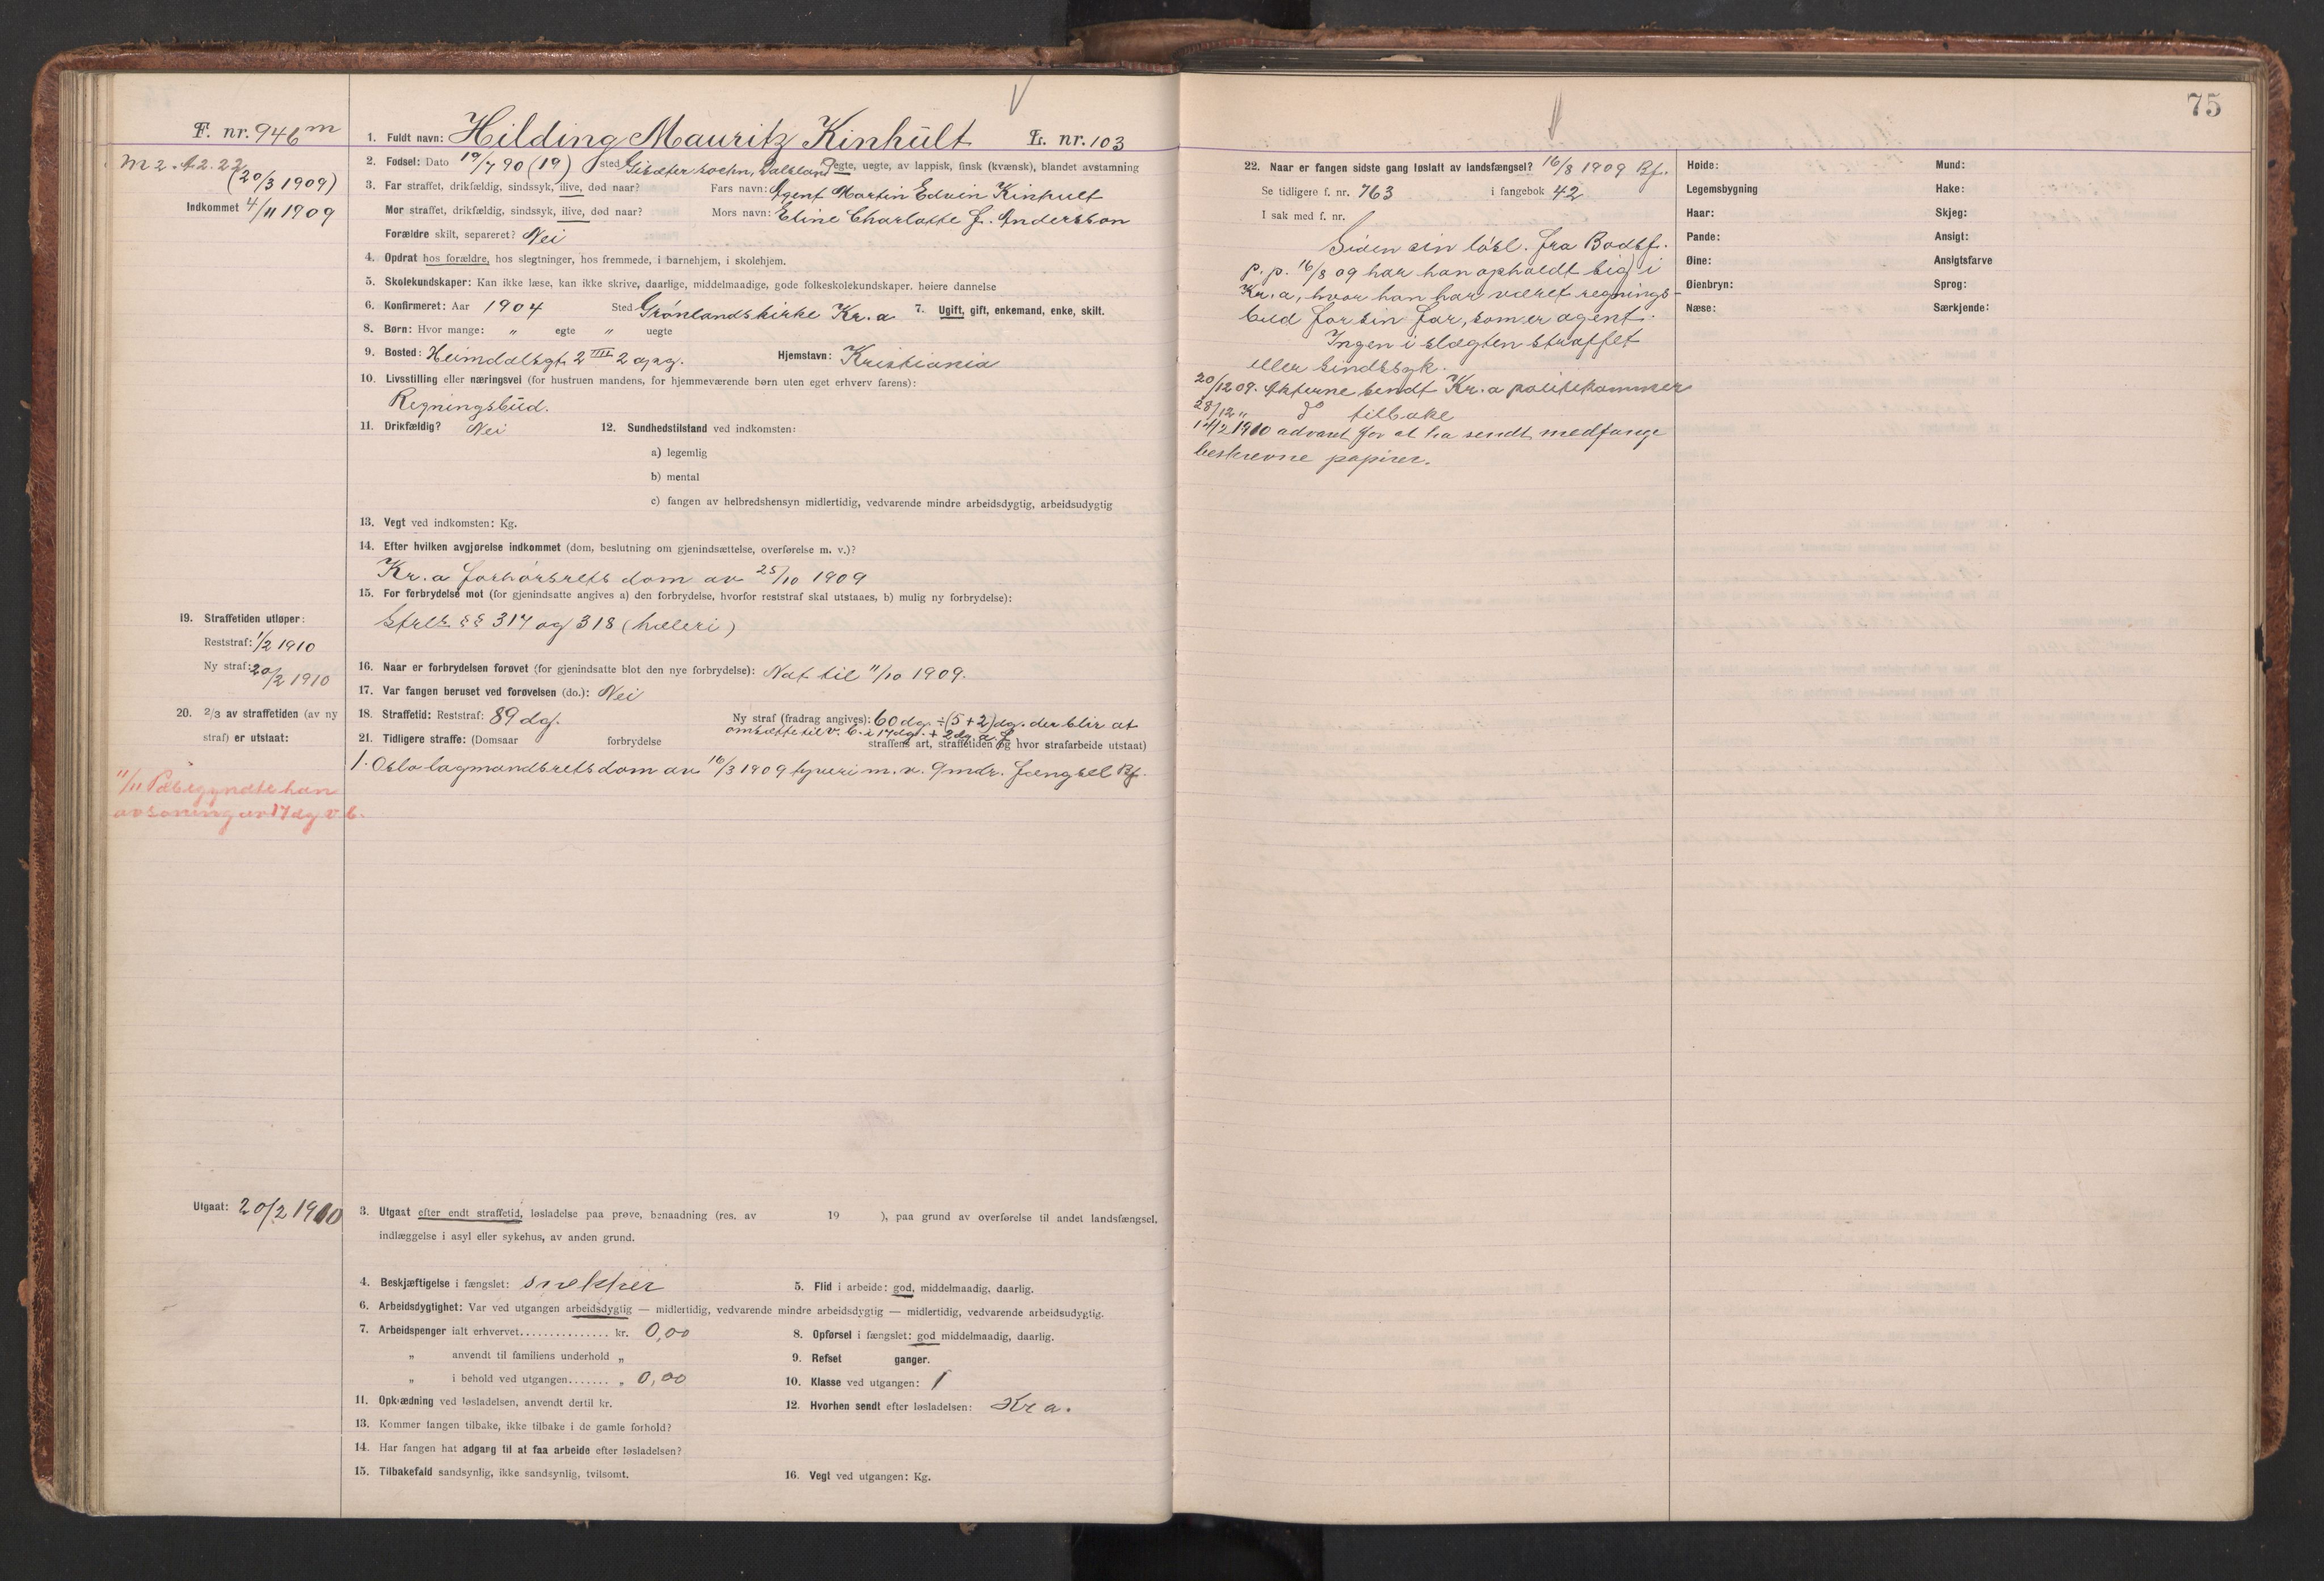 F. nr. 946 m
M 2. A2. 22
(20/3 1909)
Indkommet 4/11 1909
1. Fuldt navn: Hilding Mauritz Kinhult L. nr. 103
2. Fødsel: Dato 19/7 90 (19) sted socken, Dalsland egte, uegte, av lappisk, finsk (kvænsk), blandet avstamning
3. Far straffet, drikfældig, sindssyk, ilive, død naar? Fars navn: Agent Martin Edvin Kinhult
Mor straffet, drikfældig, sindssyk, ilive, død naar? Mors navn: Eline Charlotte J. Andersson
Forældre skilt, separeret? Nei
4. Opdrat hos forældre, hos slegtninger, hos fremmede, i barnehjem, i skolehjem.
5. Skolekundskaper: Kan ikke læse, kan ikke skrive, daarlige, middelmaadige, gode folkeskolekundskaper, høiere dannelse
6. Konfirmeret: Aar 1904 Sted Grønlandskirke Kr.a 7. Ugift, gift, enkemand, enke, skilt.
8. Børn: Hvor mange: „ egte „ uegte
9. Bosted: Heimdalsgt. 2 IIII 2 opg. Hjemstavn: Kristiania
10. Livsstilling eller næringsvei (for hustruen mandens, for hjemmeværende børn uten eget erhverv farens):
Regningsbud.
11. Drikfældig? Nei 12. Sundhedstilstand ved indkomsten:
a) legemlig
b) mental
c) fangen av helbredshensyn midlertidig, vedvarende mindre arbeidsdygtig, arbeidsudygtig
13. Vegt ved indkomsten: Kg.
14. Efter hvilken avgjørelse indkommet (dom, beslutning om gjenindsættelse, overførelse m. v.)?
Kr.a forhørsrets dom av 25/10 1909
15. For forbrydelse mot (for gjenindsatte angives a) den forbrydelse, hvorfor reststraf skal utstaaes, b) mulig ny forbrydelse):
Strl §§ 317 og 318 (hæleri)
19. Straffetiden utløper:
Reststraf: 1/2 1910
Ny straf: 20/2 1910
16. Naar er forbrydelsen forøvet (for gjenindsatte blot den nye forbrydelse): Nat til 11/10 1909.
17. Var fangen beruset ved forøvelsen (do.): Nei
20. 2/3 av straffetiden (av ny
straf) er utstaat:
18. Straffetid: Reststraf: 89 dg. Ny straf (fradrag angives): 60 dg. ÷ (5 + 2) dg. der blir at
omsætte til v. b. i 17 dg. + 2 dg. a. f.
21. Tidligere straffe: (Domsaar forbrydelse straffens art, straffetiden og hvor strafarbeide utstaat)
1. Oslo lagmandsrets dom av 16/3 1909 tyveri m. v. 9 mdr. fængsel Bf.
11/11 Paabegyndte han
avsoning av 17 dg v. b.
Utgaat: 20/2 1910
3. Utgaat efter endt straffetid, løsladelse paa prøve, benaadning (res. av 19 ), paa grund av overførelse til andet landsfængsel,
indlæggelse i asyl eller sykehus, av anden grund.
4. Beskjæftigelse i fængslet: snekker 5. Flid i arbeide: god, middelmaadig, daarlig.
6. Arbeidsdygtighet: Var ved utgangen arbeidsdygtig — midlertidig, vedvarende mindre arbeidsdygtig — midlertidig, vedvarende arbeidsudygtig.
7. Arbeidspenger ialt erhvervet............... kr. 0,00 8. Opførsel i fængslet: god middelmaadig, daarlig.
„ anvendt til familiens underhold „ 9. Refset ganger.
„ i behold ved utgangen....... „ 0,00 10. Klasse ved utgangen: 1
11. Opklædning ved løsladelsen, anvendt dertil kr. 12. Hvorhen sendt efter løsladelsen: Kr a.
13. Kommer fangen tilbake, ikke tilbake i de gamle forhold?
14. Har fangen hat adgang til at faa arbeide efter løsladelsen?
15. Tilbakefald sandsynlig, ikke sandsynlig, tvilsomt. 16. Vegt ved utgangen: Kg.
75
22. Naar er fangen sidste gang løslatt av landsfængsel? 16/8 1909 Bf.
Se tidligere f. nr. 763 i fangebok 42
I sak med f. nr.
Siden sin løsl. fra Bodsf.
p. p. 16/8 09 har han opholdt sig i
Kr.a, hvor han har været regnings-
bud for sin far, som er agent.
Ingen i slægten straffet
eller sindssyk.
20/12 09. Akterne sendt Kr.a politikammer
28/12 „ do tilbake
14/2 1910 advaret for at ha sendt medfange
beskrevne papirer.
Høide: Mund:
Legemsbygning Hake:
Haar: Skjeg:
Pande: Ansigt:
Øine: Ansigtsfarve
Øienbryn: Sprog:
Næse: Særkjende: